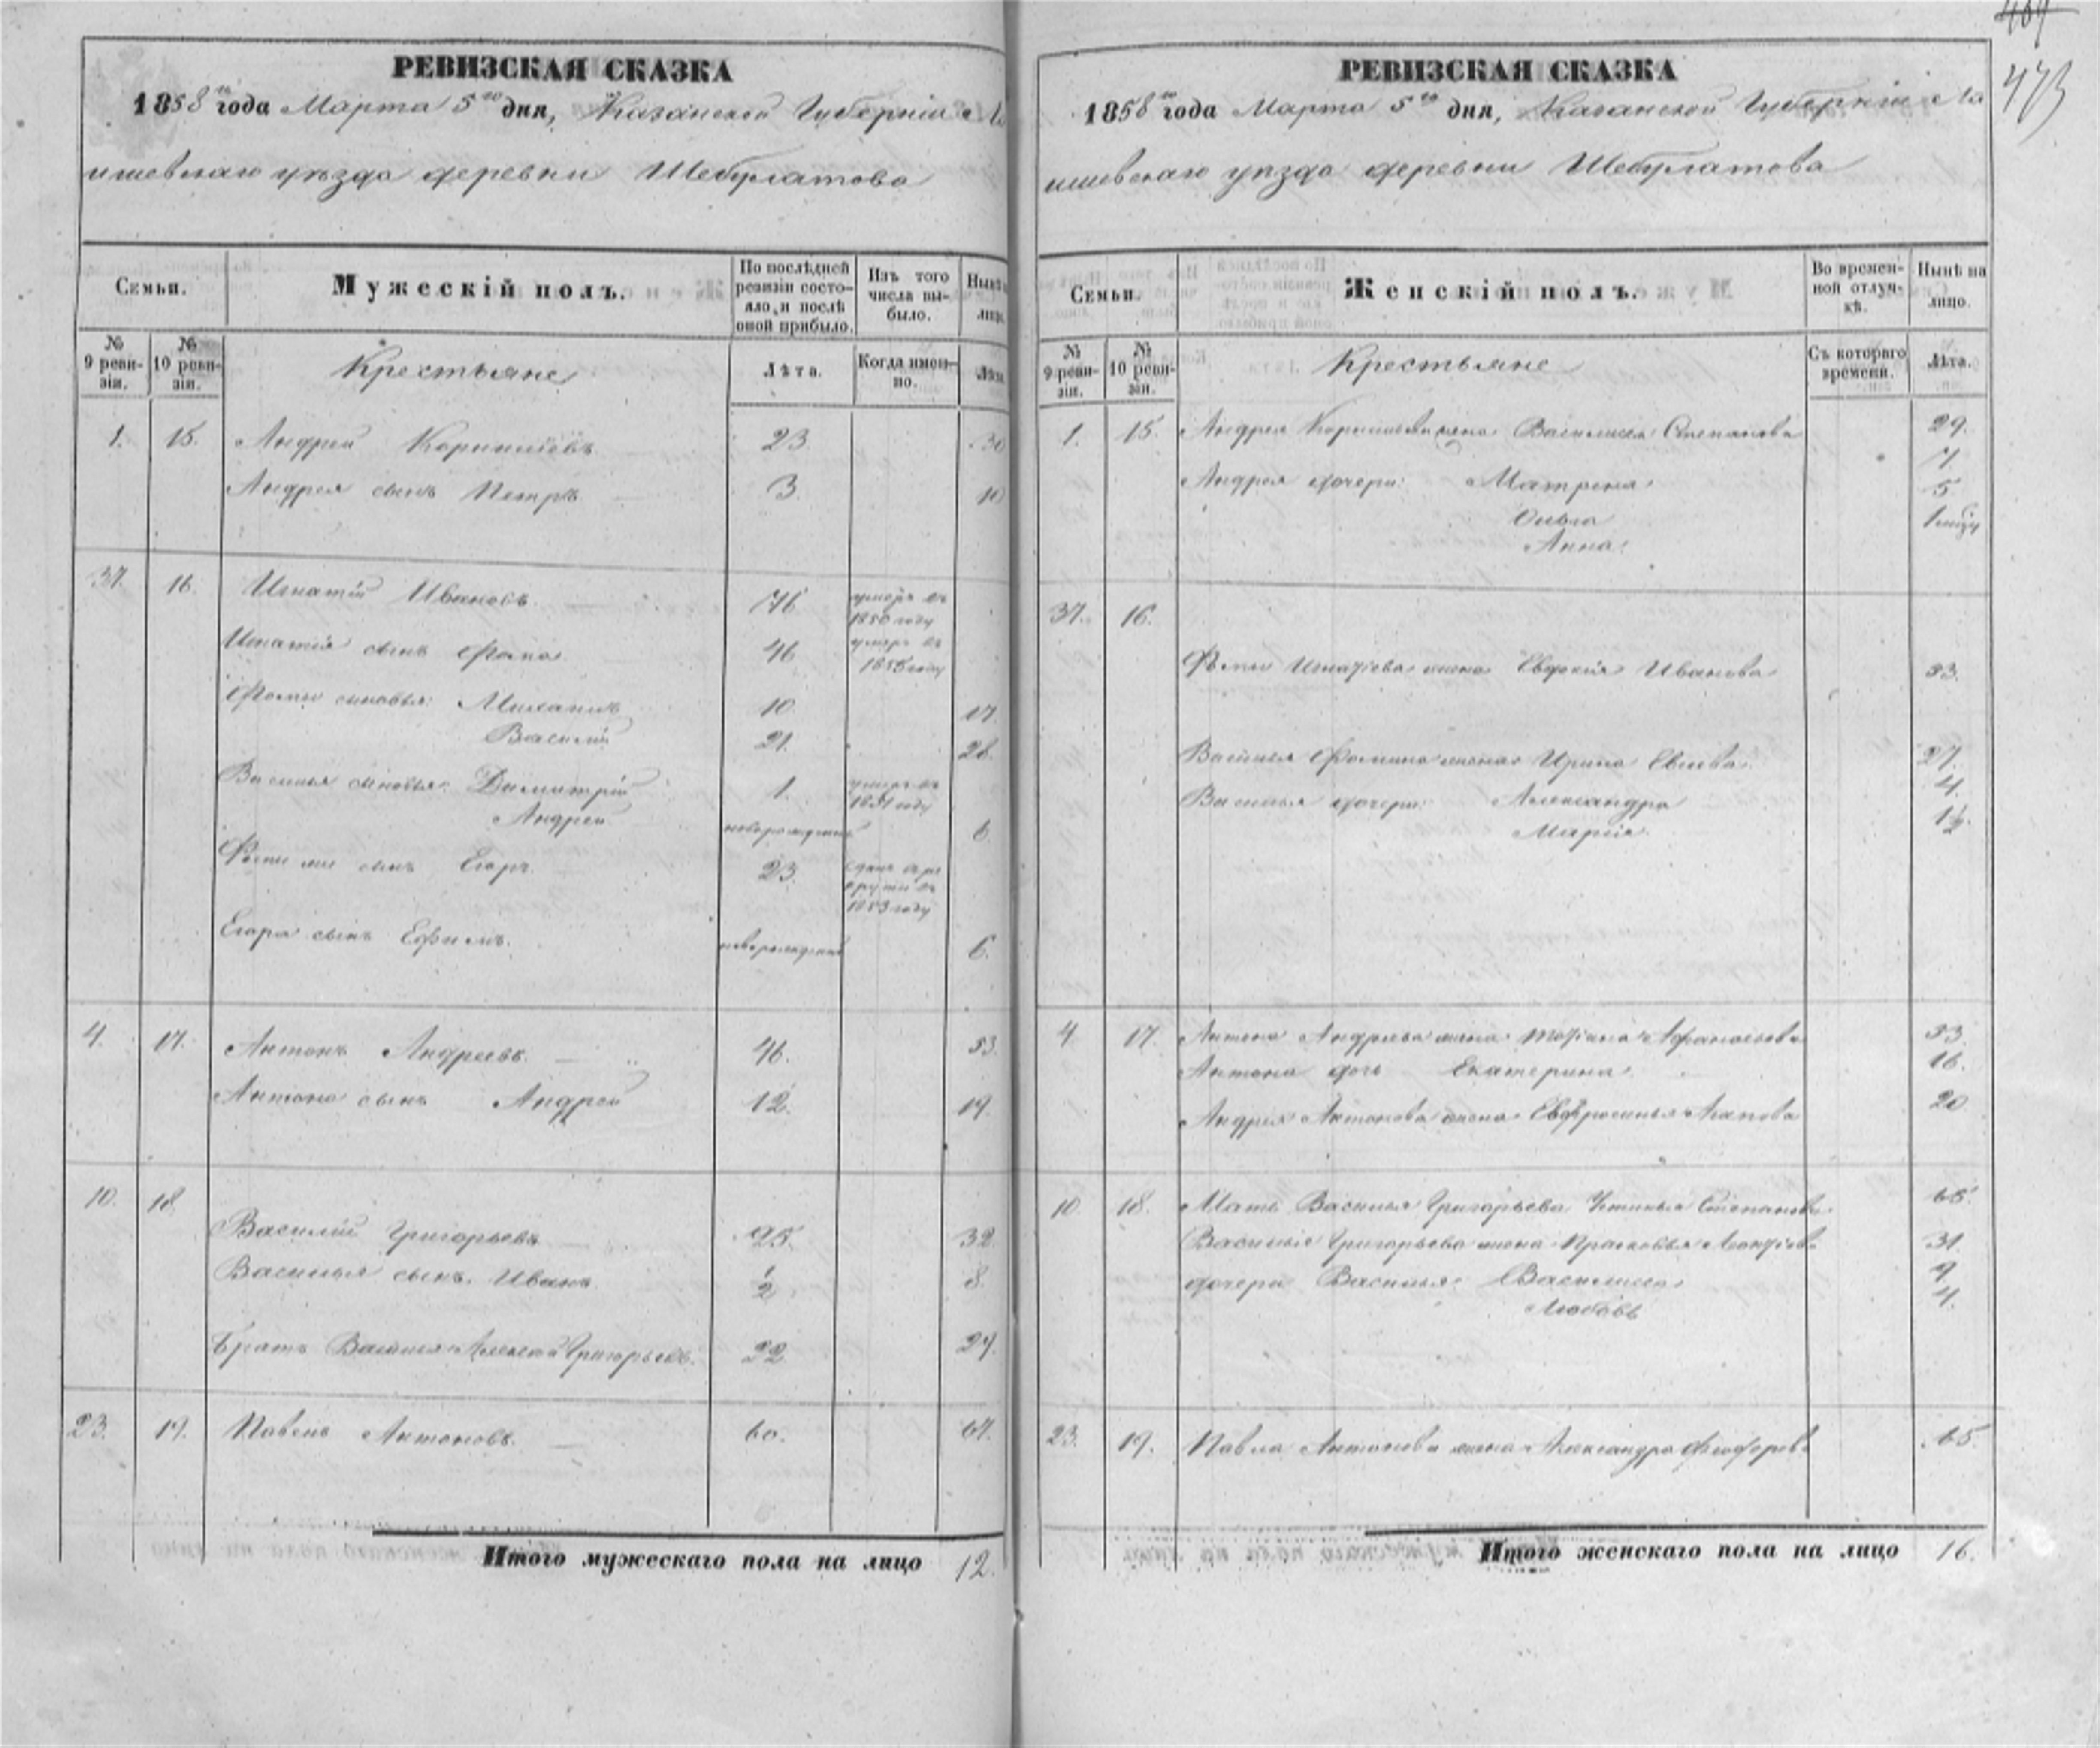 469
473
РЕВИЗСКАЯ СКАЗКА
1858го года Марта 5го дня, Казанской Губерніи Ла
ишевскаго уѣзда деревни Шебулатова
Семьи.
Мужескій полъ.
По послѣдней ревизіи состояло, и послѣ оной прибыло.
Изъ того числа выбыло.
Нынѣ
лицо
№ 9 ревизіи.
№ 10 ревизіи.
Крестьяне
Лѣта.
Когда именно.
Лѣта
1. 15. Андрей Корниліевъ 23. 30
Андрея сынъ Петръ 3. 10
37. 16. Игнатій Ивановъ 76 умеръ въ 1850 году
Игнатія сынъ Фома 46 умеръ въ 1855 году
Фомы сыновья: Михаилъ 10. 17.
Василій 21. 28.
Василья сыновья: Димитрій 1. умеръ въ 1851 году
Андрей новорожденный 6
Фомы сынъ Егоръ 23. сданъ въ рекруты въ 1853 году
Егора сынъ Ефимъ новорожденный 6.
4. 17. Антонъ Андреевъ 46. 53.
Антона сынъ Андрей 12. 19.
10. 18. Василій Григорьевъ 25. 32
Василья сынъ Иванъ 1/2 8.
Братъ Василья Алексѣй Григорьевъ. 22 29.
23. 19. Павелъ Антоновъ. 60. 67.
Итого мужескаго пола на лицо 12.
РЕВИЗСКАЯ СКАЗКА
1858го года Марта 5го дня, Казанской Губерніи Ла
ишевскаго уѣзда деревни Шебулатова
Семьи.
Женскій полъ.
Во временной отлучкѣ.
Нынѣ на лицо.
№ 9 ревизіи.
№ 10 ревизіи.
Крестьяне
Съ котораго времени.
Лѣта.
1. 15. Андрея Корнильева жена Василиса Степанова 29.
Андрея дочери: Матрена 7
5
Анна
37. 16.
Фомы Игнатіева жена Иванова 53.
Василья Фомина жена Ирина 27.
Василья дочери: Александра 4.
Марія 1½.
4 17. Антона Андреева жена Татіана Афанасьева 53.
Антона дочь Екатерина 16.
Андрея Антонова жена Евфросинья Агапова 20
10 18. Мать Василья Григорьева Устинья Степанова 65.
Василья Григорьева жена Прасковья 31.
дочери Василья: Василиса 9
Любовь 4.
23. 19. Павла Антонова жена Александра Феодорова 65.
Итого женскаго пола на лицо 16.